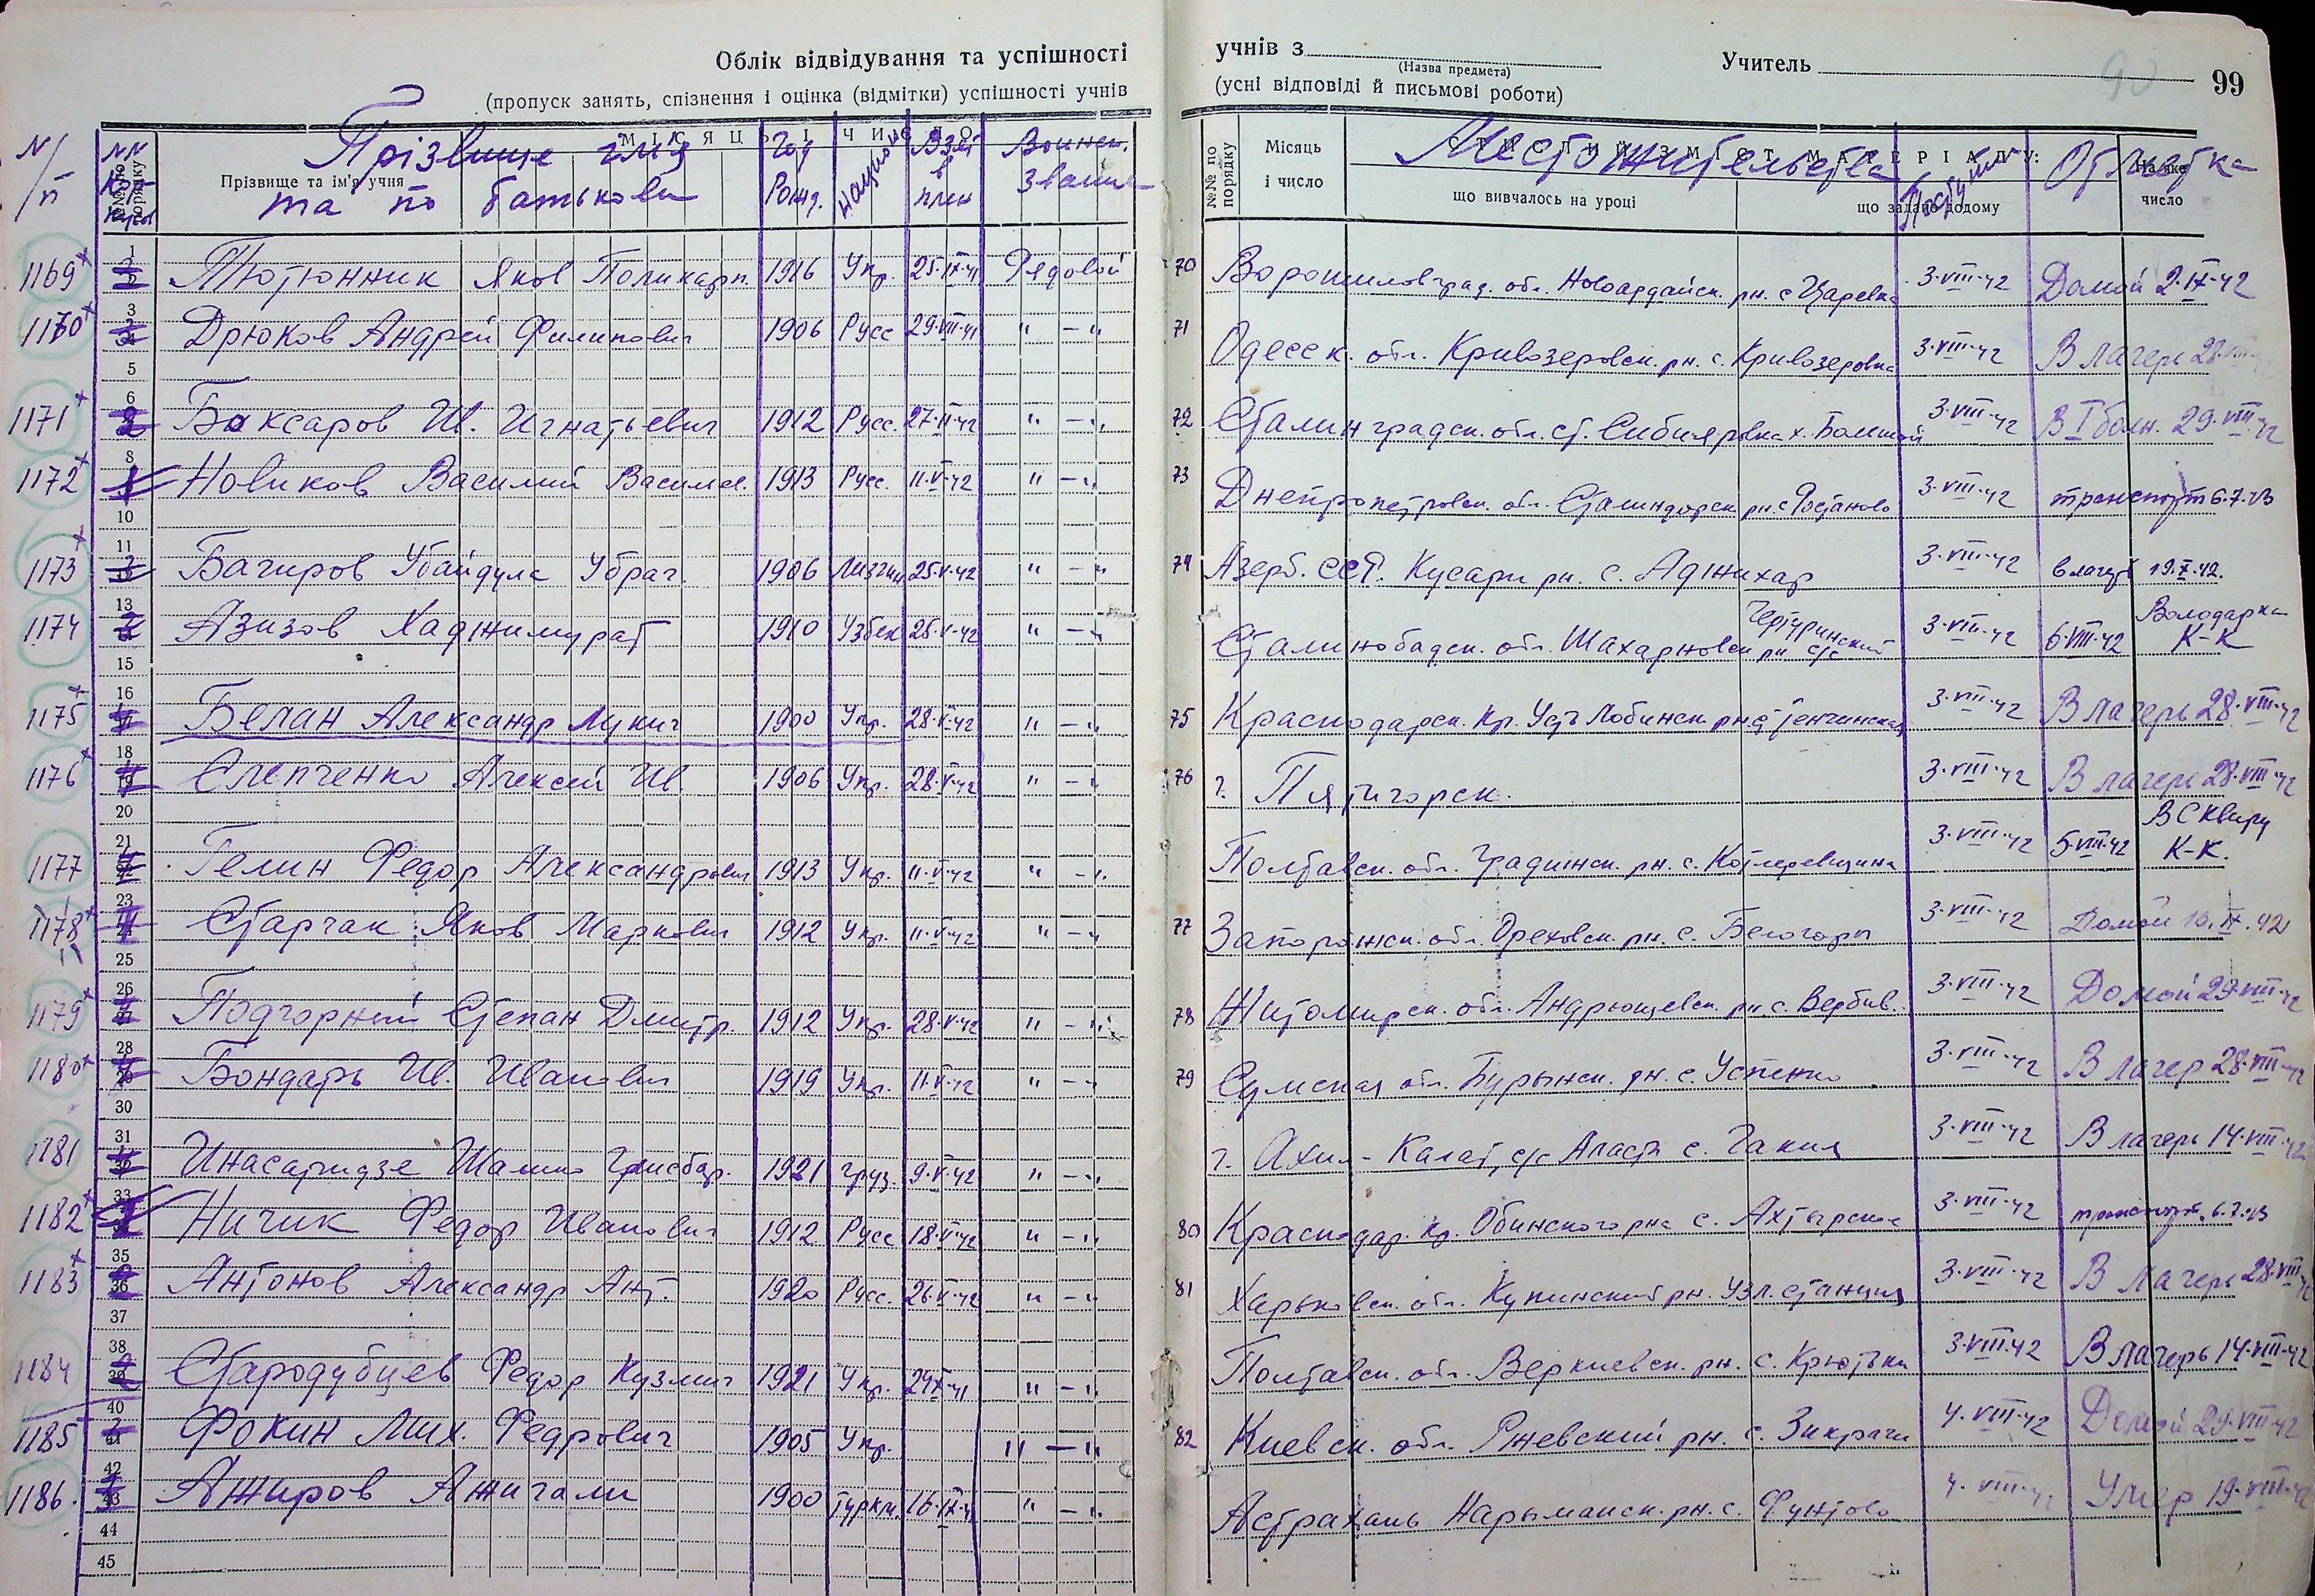 Облік відвідування та успішності
(пропуск занять, спізнення і оцінка (відмітки) успішності учнів
учнів з
(Назва предмета)
Учитель
99
90
(усні відповіді й письмові роботи)
№/п
Прізвище та ім'я учня
Прізвище
та по батькови
Год Рожд.
Национ
Взят в плен
Воинск. звание
№№ по порядку
Місяць і число
Местожительства
що вивчалось на уроці
що задано додому
Поступил
Отметка
На яке число
1169 Тютюнник Яков Поликарп. 1916 Укр. 25·IX·41 Рядовой 70 Ворошиловград. обл. Новоайдайск. рн. с Царевка 3·VIII·42 Домой 2·IX·42
1170 Дрюков Андрей Филипович 1906 Русс 29·VIII·41 "–" 71 Одесск. обл. Кривозеровск. рн. с. Кривозеровка 3·VIII·42 В лагерь 28·VIII
1171 Баксаров Ив. Игнатьевич 1912 Русс. 27·II·42 "–" 72 Сталинградск. обл. ст. х. 3·VIII·42 В I больн. 29·VIII·42
1172 Новиков Василий Василев. 1913 Русс. 11·V·42 "–" 73 Днепропетровск. обл. Сталиндорск рн. с 3·VIII·42 транспорт 6.7.43
1173 Багиров Убайдула Убраг. 1906 Лизгин 25·V·42 "–" 74 Азерб. ССР. Кусари рн. с. Аджихар 3·VIII·42 в лагерь 19.X.42.
1174 Азизов Хаджимурат 1910 Узбек 25·V·42 "–" Сталинобадск. обл. Шахарновск рн с/с 3·VIII·42 6·VIII·42 Володарка К-К
1175 Белан Александр Лукич 1900 Укр. 28·V·42 "–" 75 Краснодарск. Кр. Усть Лобинск. рн. 3·VIII·42 В лагерь 28·VIII·42
1176 Слепченко Алексей Ив. 1906 Укр. 28·V·42 "–" 76 г. Пятигорск. 3·VIII·42 В лагерь 28·VIII·42
1177 Гелин Федор Александрович 1913 Укр. 11·V·42 "–" Полтавск. обл. Градижск. рн. с. 3·VIII·42 5·VIII·42 В Сквиру К-К.
1178 Старчак Яков Маркович 1912 Укр. 11·V·42 "–" 77 Запорожск. обл. Ореховск. рн. с. Белогоры 3·VIII·42 Домой 10.IX.42
1179 Подгорний Степан Дмитр. 1912 Укр. 28·V·42 "–" 78 Житомирск. обл. Андрюшевск. рн. с. Вербив. 3·VIII·42 Домой 29·VIII·42
1180 Бондарь Ив. Иванович 1919 Укр. 11·V·42 "–" 79 Сумская обл. Бурынск. рн. с. Успенка 3·VIII·42 В лагер 28·VIII·42
1181 Инасаридзе Шалико 1921 груз. 9·V·42 "–" г. Ахил-Калат, с/с с. 3·VIII·42 В лагерь 14·VIII·42
1182 Ничик Федор Иванович 1912 Русс 18·V·42 "–" 80 Краснодар. Кр. Обинского рна с. Ахтырское 3·VIII·42 транспорт. 6.7.43
1183 Антонов Александр Ант. 1920 Русс. 26·V·42 "–" 81 Харьковск. обл. Купинский рн. Узл. станция 3·VIII·42 В лагерь 28·VIII
1184 Стародубцев Федор Кузмич 1921 Укр. 24·X·41 "–" Полтавск. обл. рн. с. Крютьки 3·VIII·42 В лагерь 14·VIII·42
1185 Фокин Мих. Федрович 1905 Укр. "–" 82 Киевск. обл. Ржевский рн. с. Зикрачи 4·VIII·42 Домой 29·VIII·42
1186. Ажиров Ажигали 1900 туркм. 16·IX·41 "–" Астрахань Нарыманск. рн. с. Фунтово 4·VIII·42 Умер 19·VIII·42